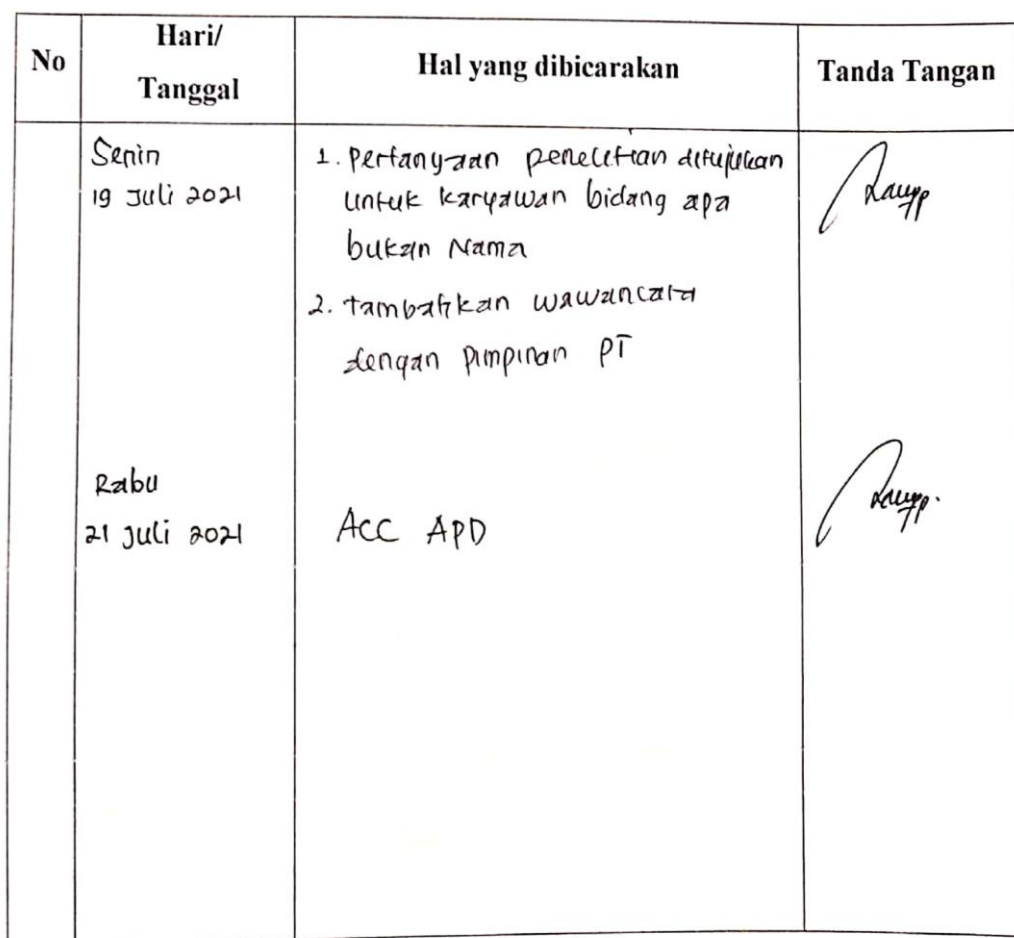 No
Hari/
Tanggal
Hal yang dibicarakan
Tanda Tangan
Senin
19 Juli 2021
1. Pertanyaan penelitian ditujukan
untuk karyawan bidang apa
bukan Nama
2. tambahkan wawancara
dengan pimpinan PT
Rabu
21 Juli 2021
ACC APD